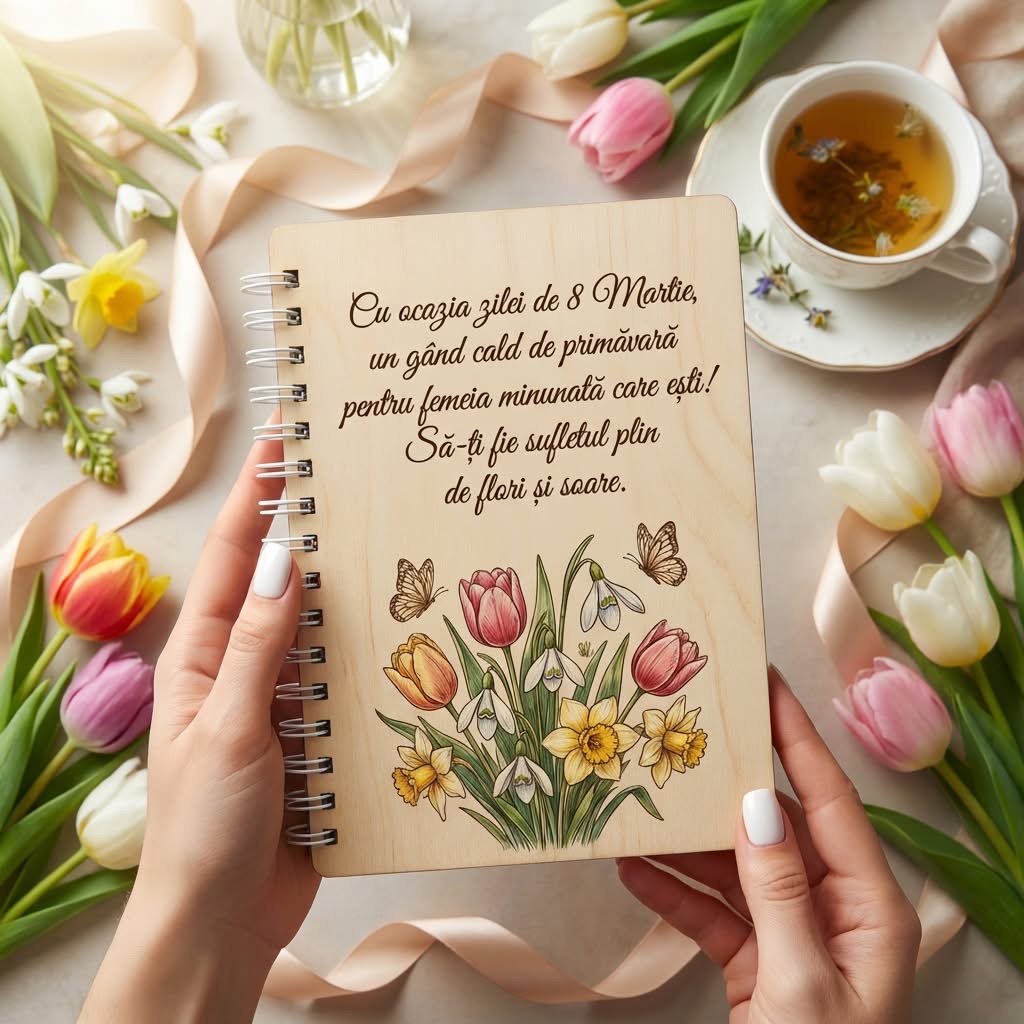 Cu ocazia zilei de 8 Martie,
un gând cald de primăvară
pentru femeia minunată care ești!
Să-ți fie sufletul plin
de flori și soare.